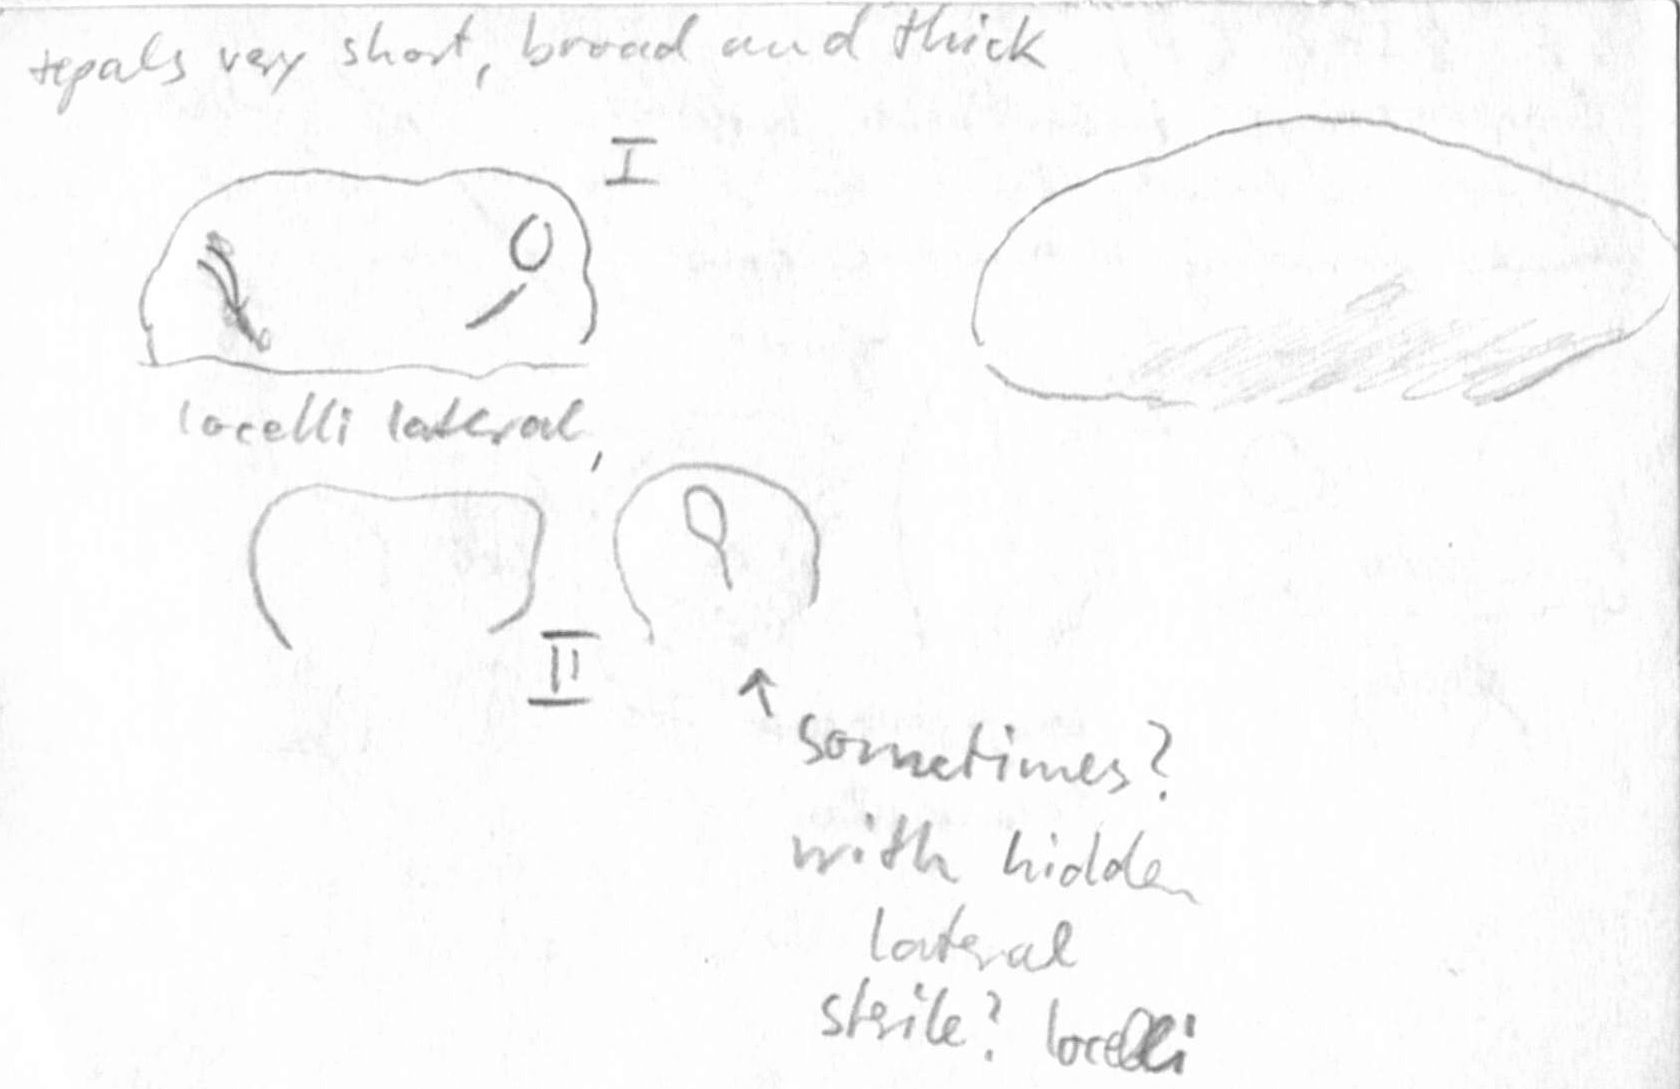 tepals very short, broad and thick
I
locelli lateral,
II
sometimes?
with hidden
lateral
sterile? locelli